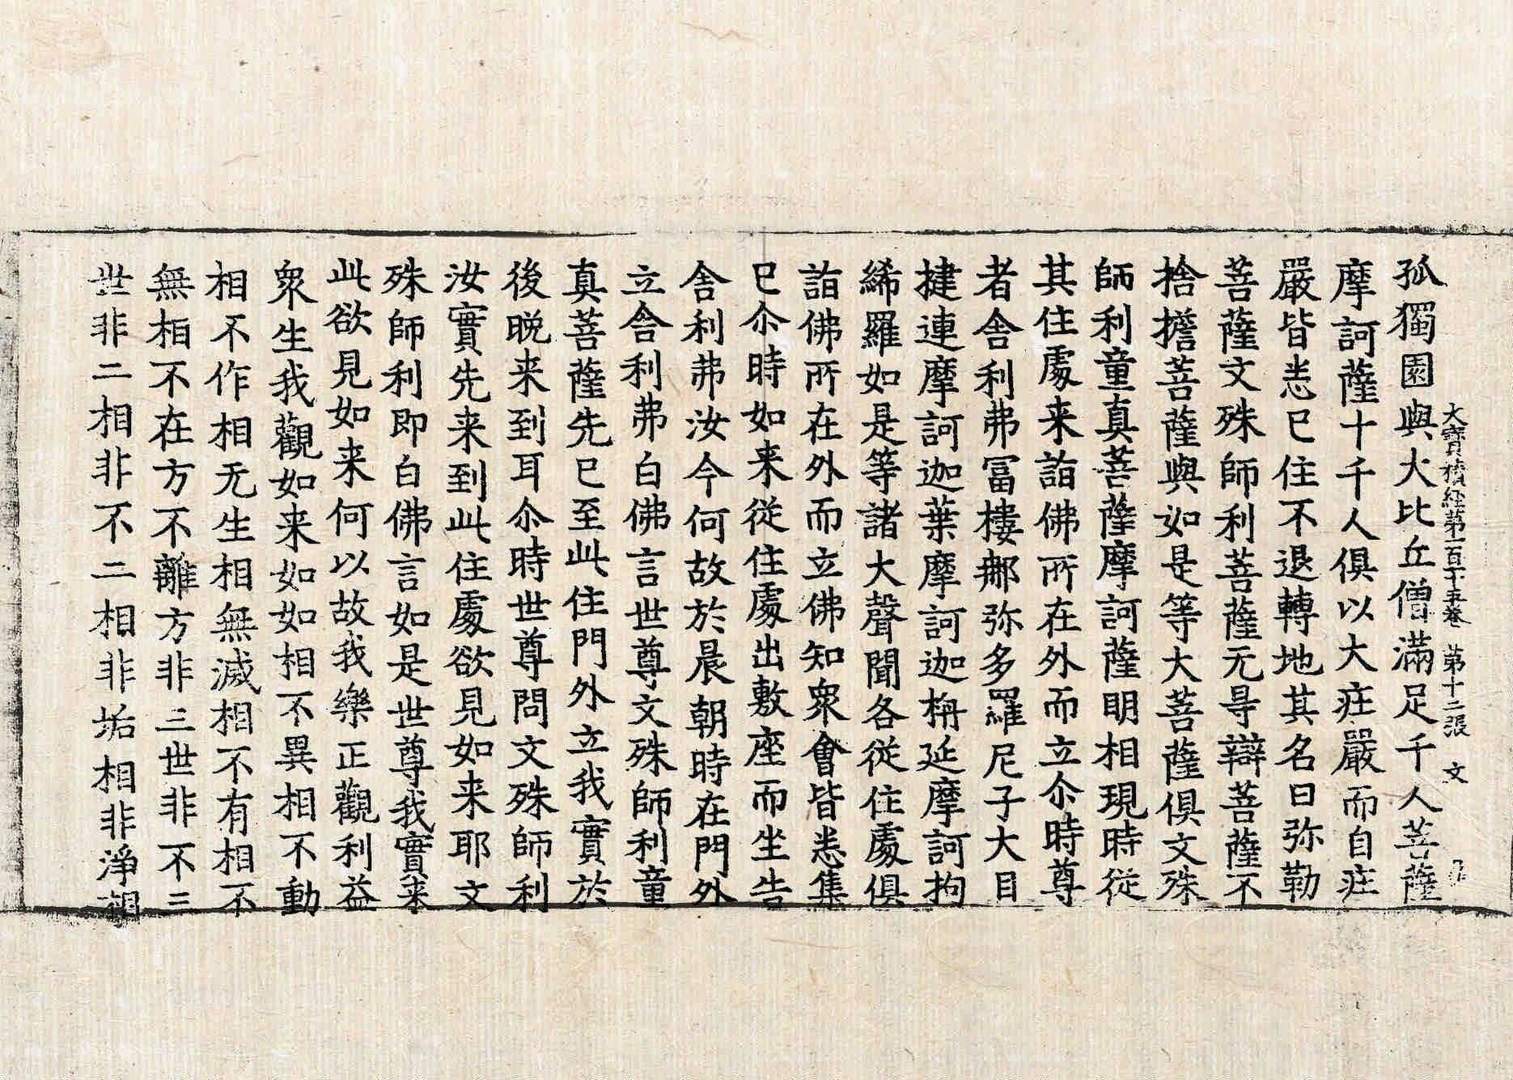 大寶積経第一百十五卷 第十二張 文
孤獨園與大比丘僧滿足千人菩薩
摩訶薩十千人俱以大庄嚴而自庄
嚴皆悉已住不退轉地其名曰弥勒
菩薩文殊師利菩薩无㝵辯菩薩不
捨擔菩薩與如是等大菩薩俱文殊
師利童真菩薩摩訶薩明相現時從
其住處来詣佛所在外而立尒時尊
者舍利弗冨樓那弥多羅尼子大目
揵連摩訶迦葉摩訶迦栴延摩訶拘
絺羅如是等諸大聲聞各從住處俱
詣佛所在外而立佛知衆會皆悉集
已尒時如来從住處出敷座而坐告
舍利弗汝今何故於晨朝時在門外
立舍利弗白佛言世尊文殊師利童
真菩薩先已至此住門外立我實於
後晩来到耳尒時世尊問文殊師利
汝實先来到此住處欲見如来耶文
殊師利即白佛言如是世尊我實来
此欲見如来何以故我樂正觀利益
衆生我觀如来如如相不異相不動
相不作相无生相無滅相不有相不
無相不在方不離方非三世非不三
世非二相非不二相非垢相非淨相